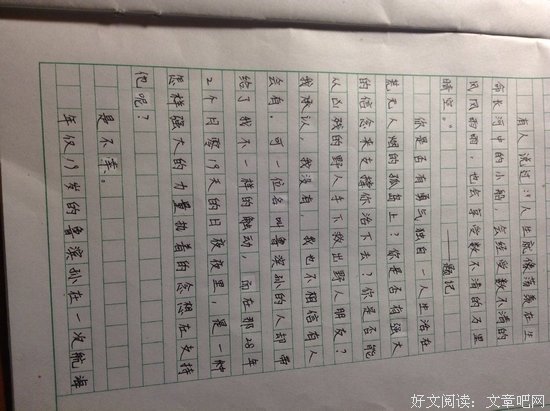 有人说过:“人生就像荡漾在生
命长河中的小船,会经受数不清的
风风雨雨,也会享受数不清的万里
晴空。”
——题记
你是否有勇气独自一人生活在
荒无人烟的孤岛上?你是否有强大
的信念来支撑你活下去?你是否能
从凶残的野人手下救出野人朋友?
我承认,我没有,我也不相信有人
会有。可一位名叫鲁滨孙的人却带
给了我不一样的触动,而在那28年
2个月零19天的日日夜夜里,是一种
怎样强大的力量执着的念想在支持
他呢?
是不幸。
年仅19岁的鲁滨孙在一次航海
好文阅读:文章吧网